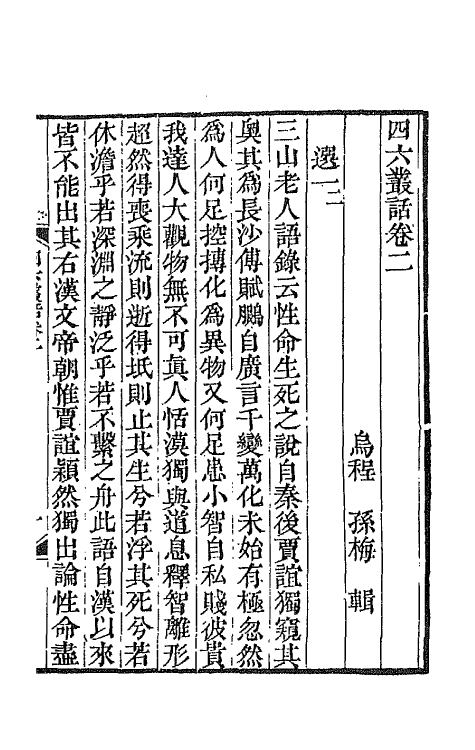 四六叢話卷二
烏程　孫梅　輯
選二
三山老人語錄云性命生死之說自秦後賈誼獨窺其
奥其爲長沙傅賦鵩自廣言千變萬化未始有極忽然
爲人何足控摶化爲異物又何足患小智自私賤彼貴
我達人大觀物無不可眞人恬漠獨與道息釋智離形
超然得喪乘流則逝得坻則止其生兮若浮其死兮若
休澹乎若深淵之靜泛乎若不繫之舟此語自漢以來
皆不能出其右漢文帝朝惟賈誼穎然獨出論性命盡